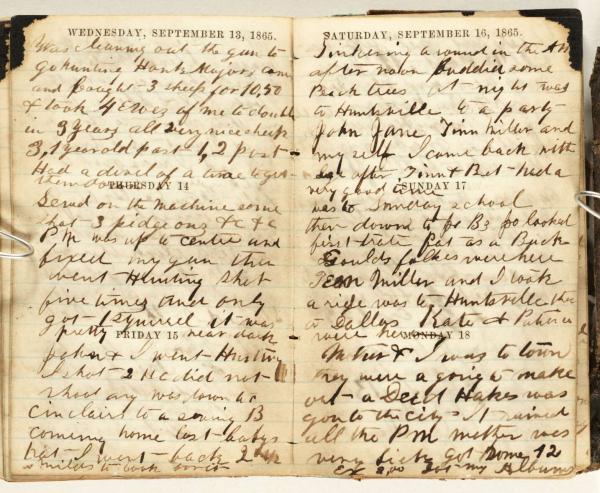 WEDNESDAY, SEPTEMBER 13, 1865.
Was cleaning out the gun to
go hunting Hank Majors came
and bought 3 sheep for 10,50
& took 4 Ewes of me to double
in 3 years all very nice sheep
3, 1 year old past 1, 2 past
Had a devil of a time to get
them
THURSDAY 14
on the machine some
shot 3 pidgeons & c & c
PM was up to centre and
fixed my gun then
went Hunting shot
five times and only
got 1 Squirrel it was
pretty near dark
FRIDAY 15
John & I went Hunting
I shot 2 He did not
shoot any was down to
coming home lost babys
hat I went back 2 1/2
miles to look for it
SATURDAY, SEPTEMBER 16, 1865.
Tinkering around in the AM
after noon buddid some
Peach trees at night was
to Huntsville to a party
John Jane, Timn Miller and
my self I come back with
after Timn & Bet had a
very good time
SUNDAY 17
was to Sunday school
then downd to Jo B3 Jo looked
first rate Fat as a Buck
Goulds folkes were here
Miller and I took
a ride was to Huntsville then
a Gallop Kate &
were here
MONDAY 18
Mother & I was to town
they were a going to make
out a Deed Hakes was
gon to the city It rained
all the PM mother was
very sick got some
2,00 got my Albums